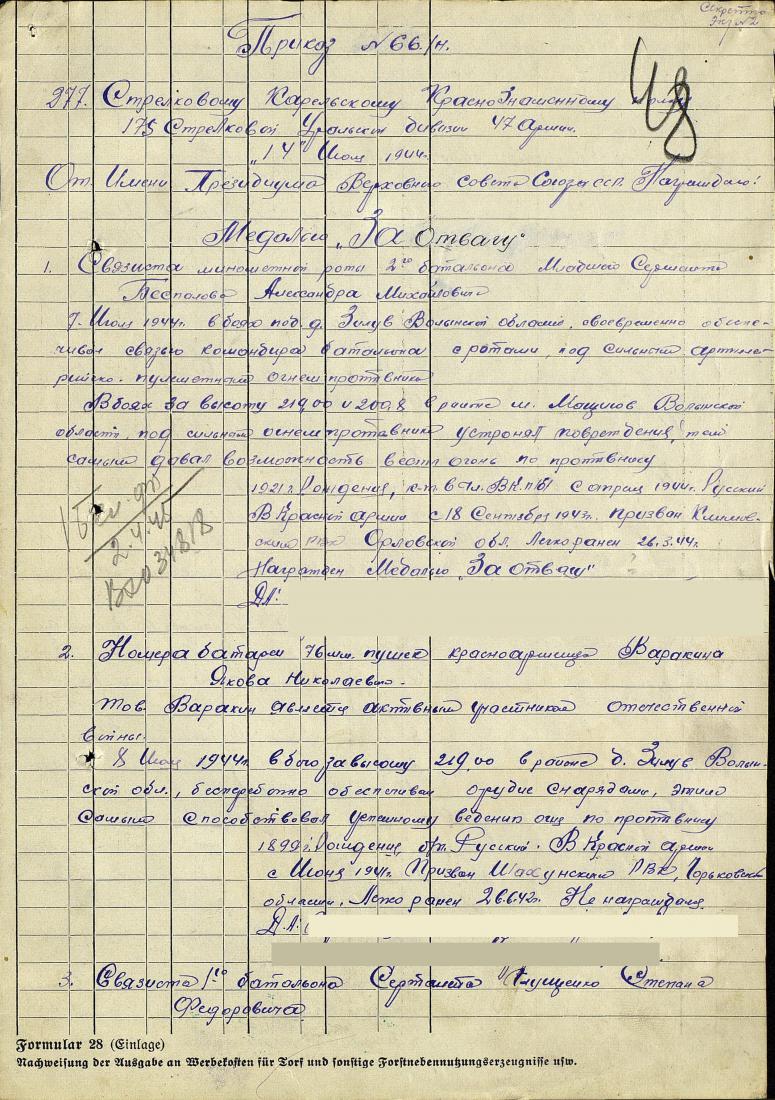 Секретно
Экз. №2
Приказ №66/н.
48
277. Стрелковому Карельскому Краснознаменному полку
175 Стрелковой Уральской дивизии 47 Армии.
"14" Июля 1944г.
От Имени Президиума Верховного совета Союза ССР. Награждаю:
Медалью "За отвагу"
1. Связиста минометной роты 2го батальона Младшего Сержанта
Александра Михайловича
7. Июля 1944г. в боях под д. Волынской области, своевременно обеспе-
чивал связью командира батальона с ротами, под сильным артилле-
рийско-пулеметным огнем противника
В боях за высоту 219,00 и 200,8 в районе м. Мациов Волынской
области, под сильным огнем противника устронял повреждения, тем
самым давал возможность вести огонь по противнику
1921г. Рождения, к-т в чл. ВКП/б/ с апреля 1944г. Русский
В Красной армии с 18 Сентября 1943г. призван Климов-
ским РВК Орловской обл. Легко ранен 26.3.44г.
Награжден Медалью "За отвагу"
Д.А:
2.4.45
2. Номера батареи 76 мм. пушек красноармейца Варакина
Якова Николаевича.
Тов. Варакин является активным участником отечественной
войны.
8 Июля 1944г. в бою за высоту 219,00 в районе д. Волын-
ской обл., бесперебойно обеспечивал орудие снарядами, этим
самым способствовал успешному ведению огня по противнику
1899г. Рождения, б/п. Русский. В Красной армии
с Июня 1941г. Призван Шахунским РВК, Горьковской
области. Легко ранен 26.6.42г. Не награждался.
Д.А:
3. Связиста 1го батальона Сержанта Глущенко Степана
Федоровича
Formular 28 (Einlage)
Nachweisung der Ausgabe an Werbekosten für Torf und sonstige Forstnebennutzungserzeugnisse usw.